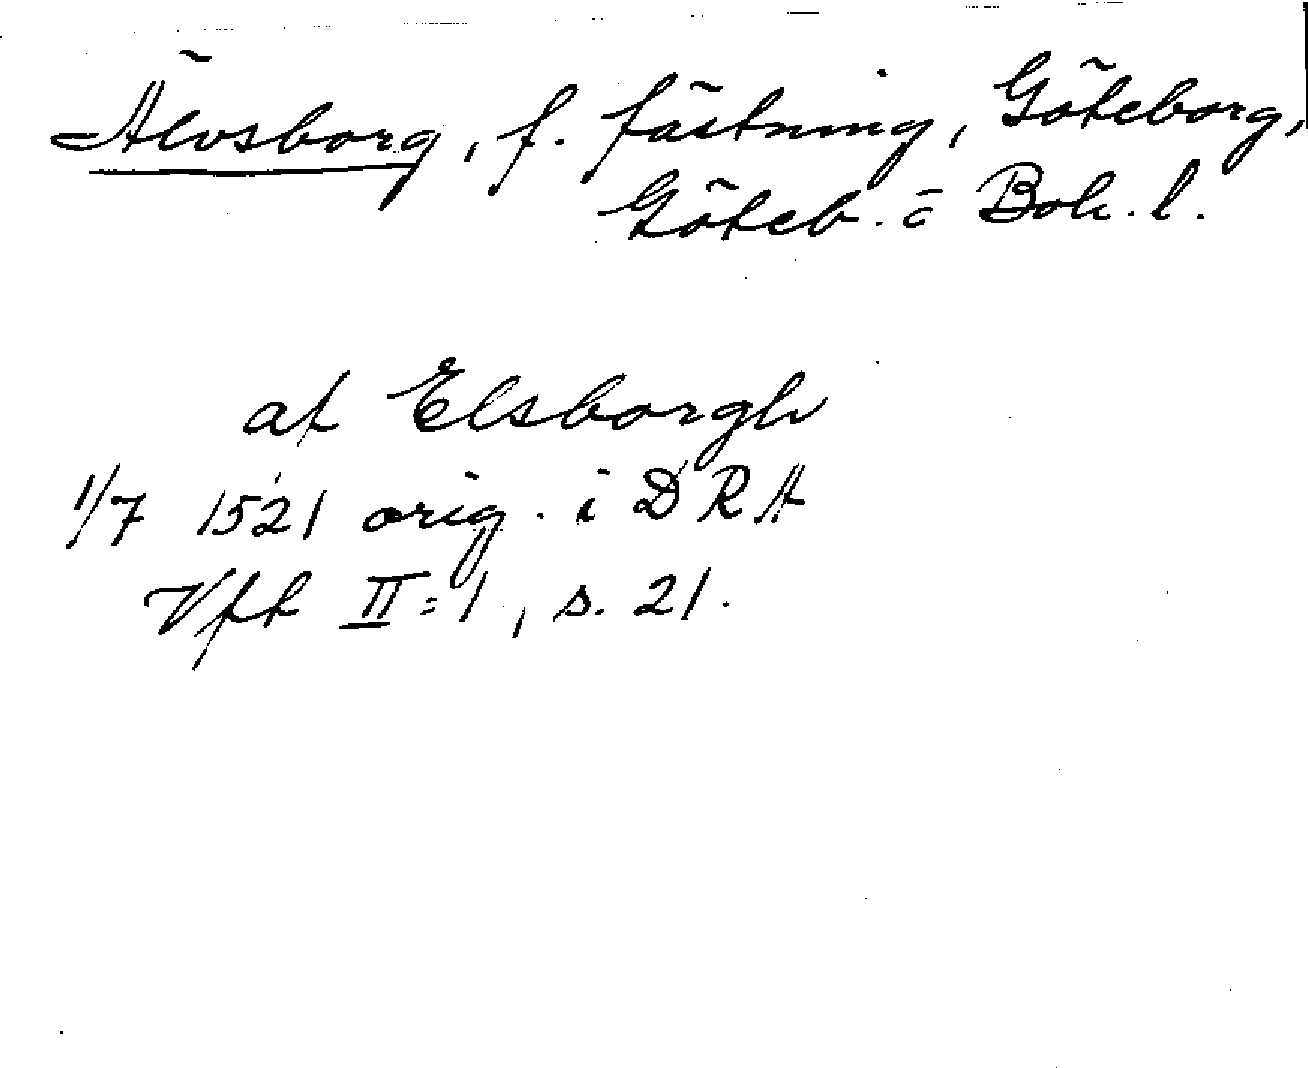 Älvsborg, f. fästning, Göteborg,
Göteb. o Boh. l.
af Elsborgh
1/7 1521 orig. i DRA
Vfh II:1, s. 21.